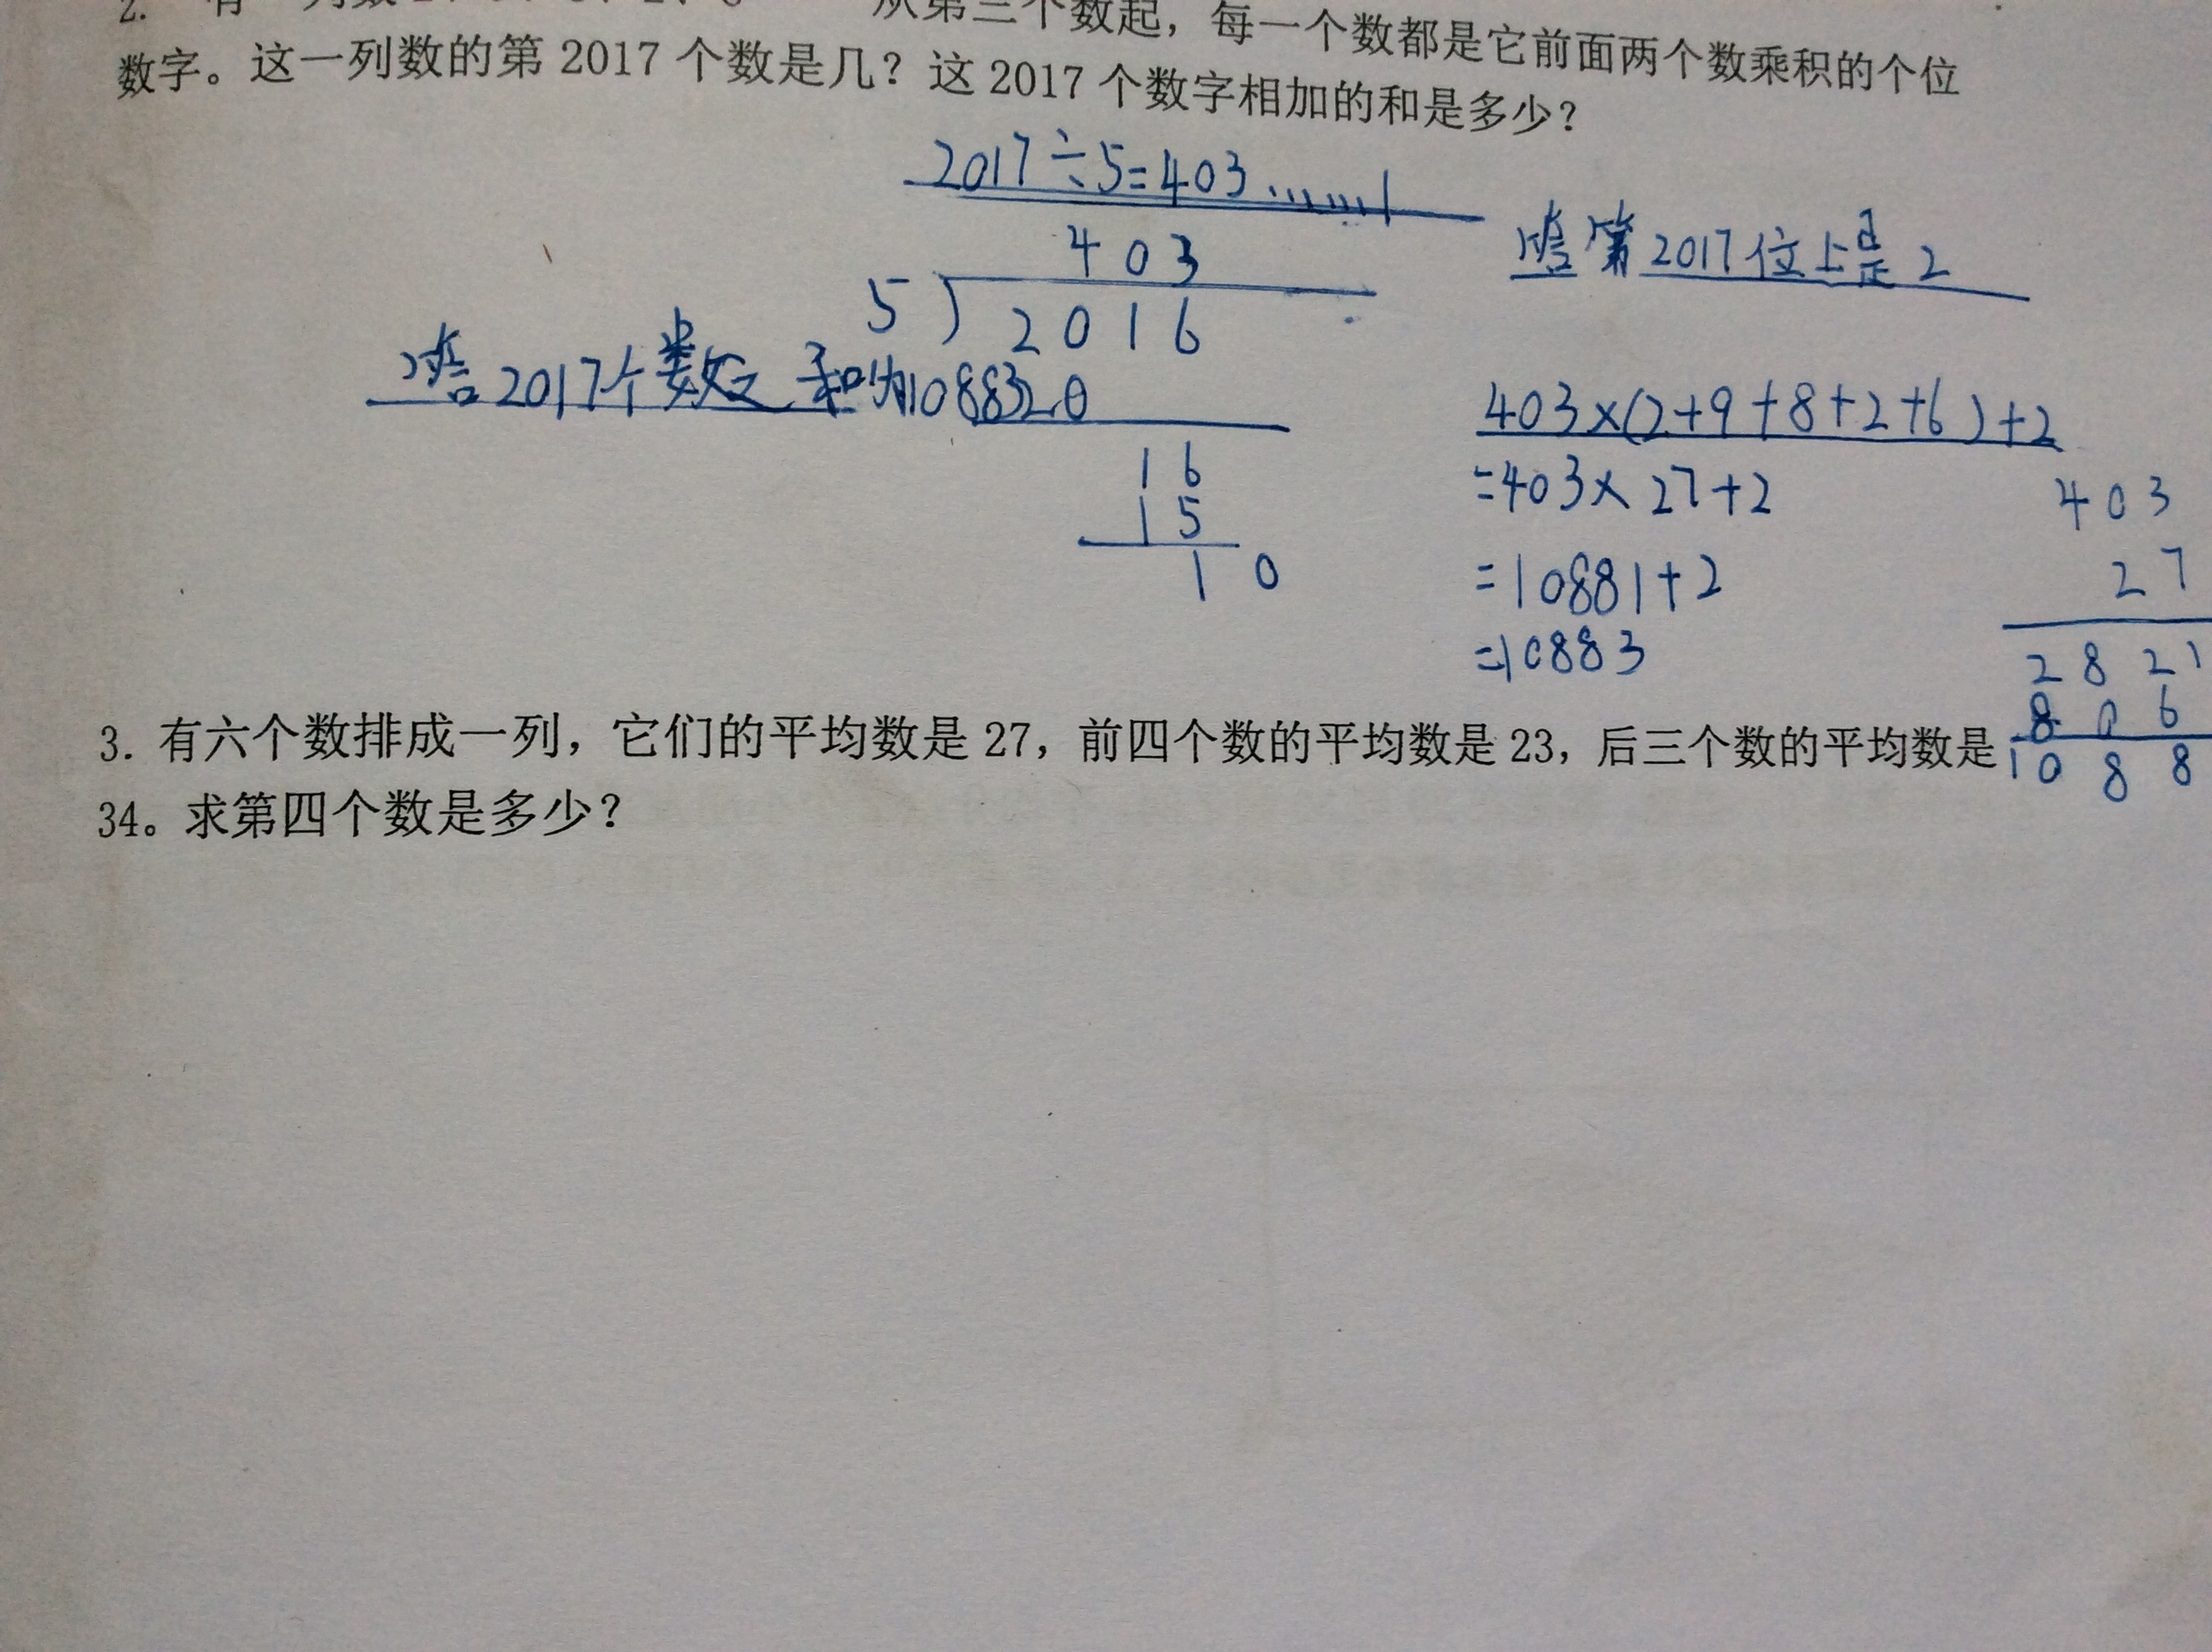 数字。这一列数的第 2017 个数是几？这 2017 个数字相加的和是多少？
从第三个数起，每一个数都是它前面两个数乘积的个位
2017÷5=403……1
答第2017位上是2
403
5)2016
答2017个数之和为10883
20
16
15
10
403×(2+9+8+2+6)+2
=403×27+2
=10881+2
=10883
403
27
2821
806
1088
3. 有六个数排成一列，它们的平均数是 27，前四个数的平均数是 23，后三个数的平均数是
34。求第四个数是多少？